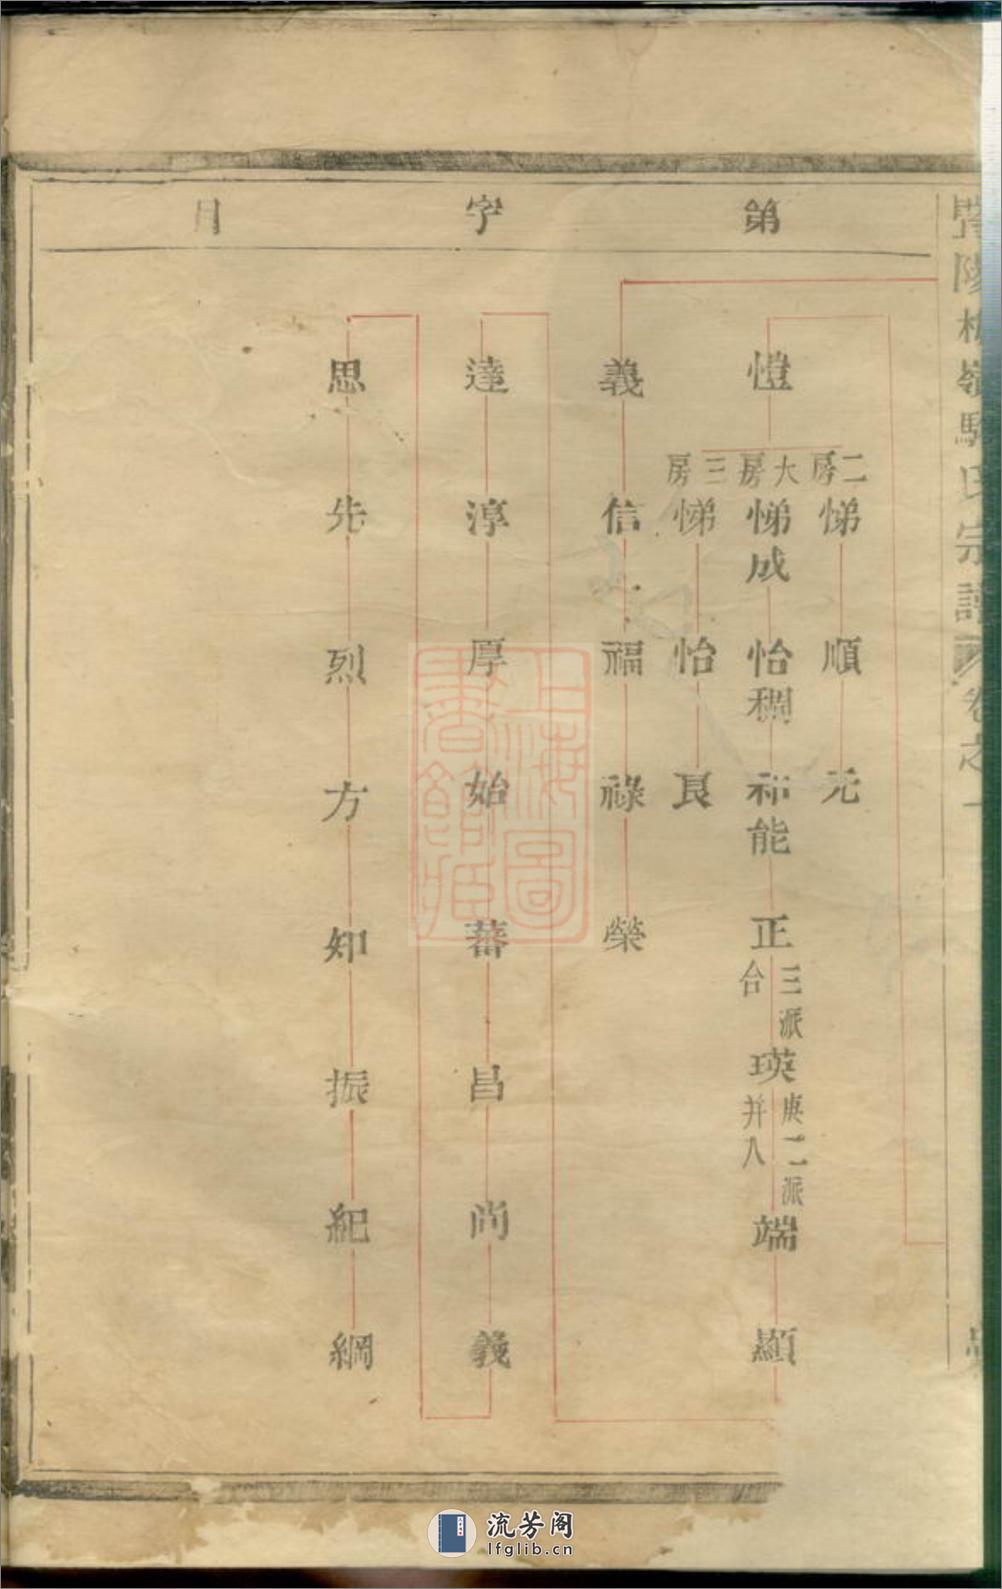 暨陽梅嶺駱氏宗譜 卷之一
第字目
愷
二房 悌 順 元
大房 悌成 怡稠 和能 正 三台派 瑛 庚二派并八 端 顯
三房 悌 怡 良
義 信 福 祿 榮
達 淳 厚 始 蕃 昌 尚 義
思 先 烈 方 知 振 紀 綱
上海圖書館藏
流芳阁
lfglib.cn